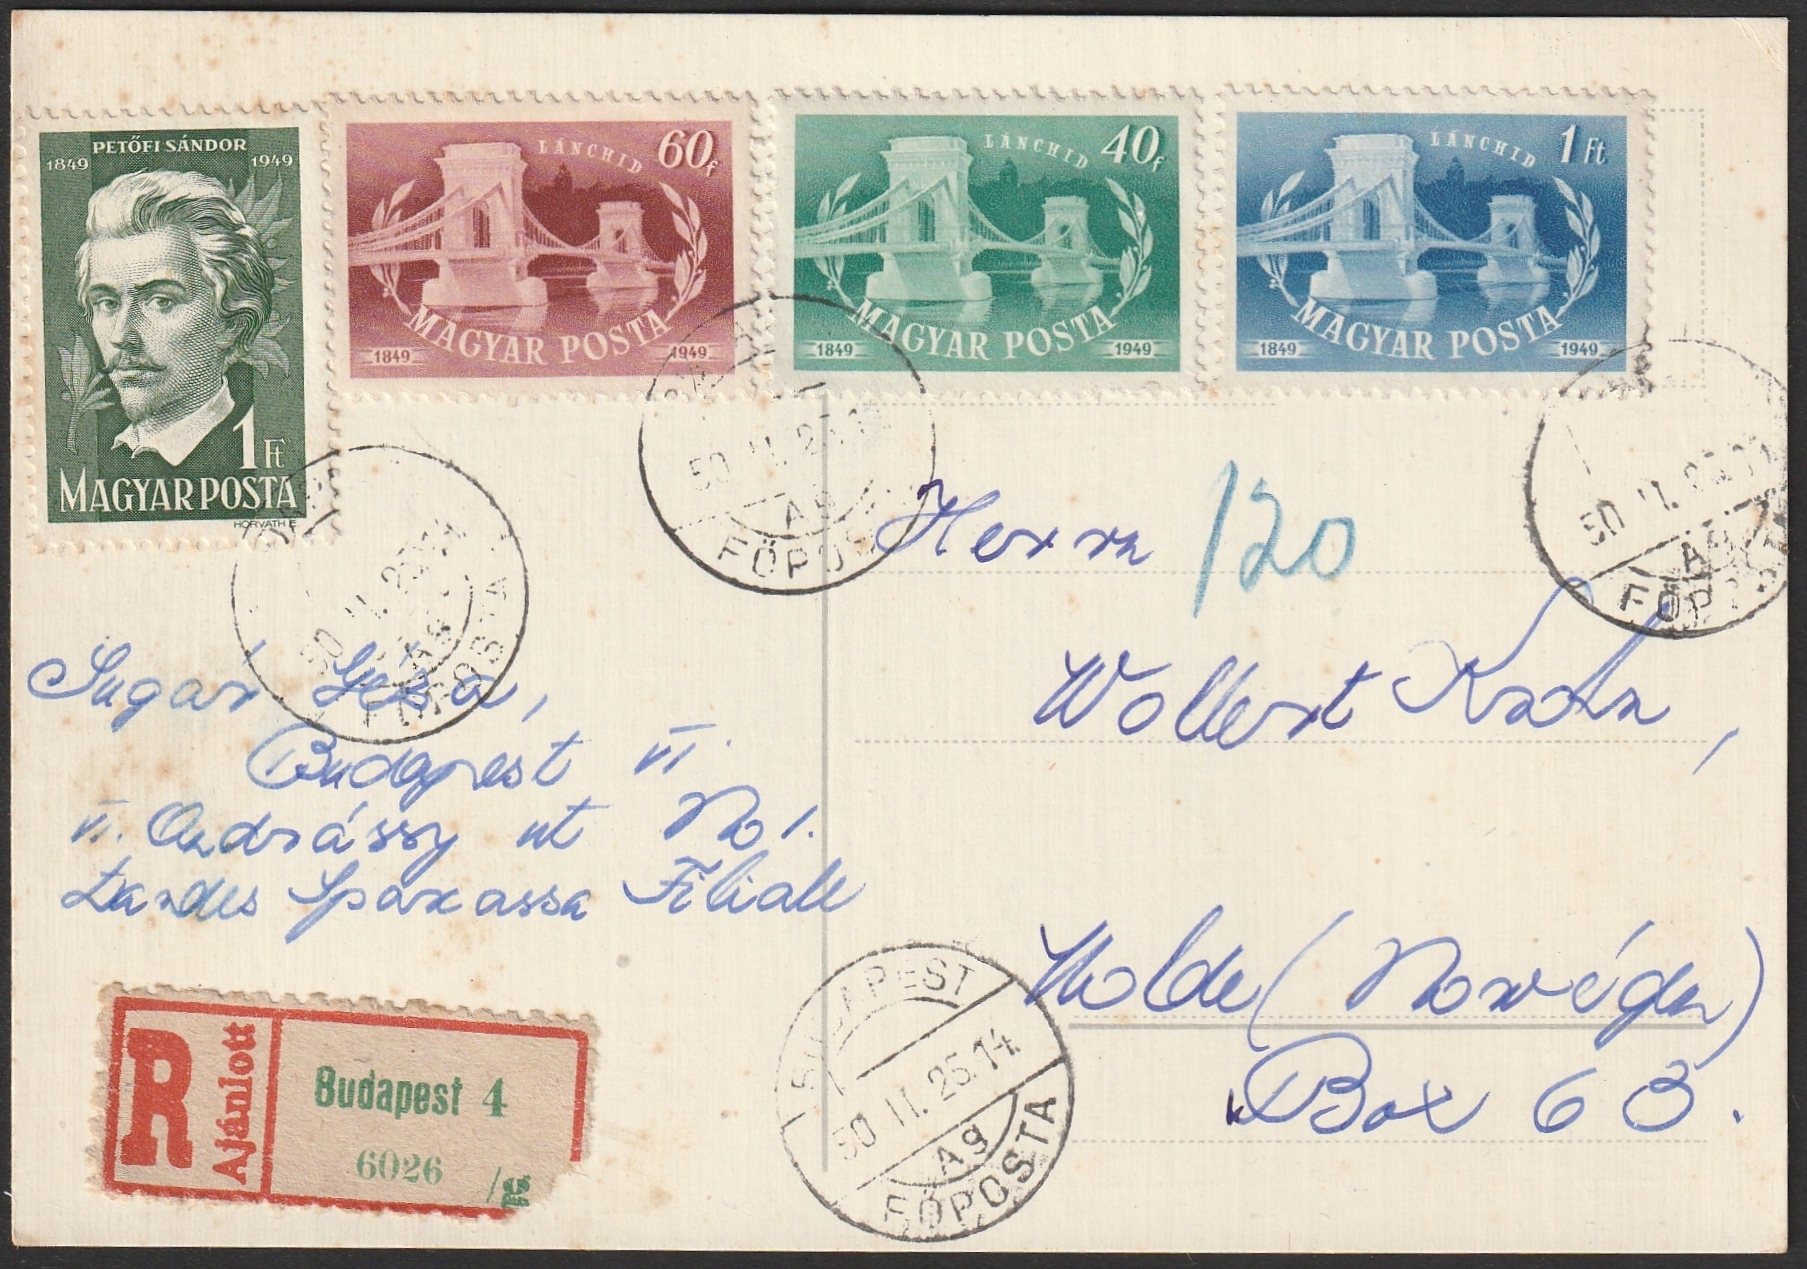 PETŐFI SÁNDOR
1849 1949
1 Ft
MAGYAR POSTA
HORVÁTH E
LÁNCHID
60f
MAGYAR POSTA
1849 1949
LÁNCHID
40f
MAGYAR POSTA
1849 1949
LÁNCHID
1 Ft
MAGYAR POSTA
1849 1949
50 II. 25.
Ag
FŐPOSTA
50 II. 25.
Ag
FŐPOS
50 II. 25.
Ag
FŐPO
Herrn 120
Wollert
Molde (Norvégia)
Box 63.
Sugár Géza,
Budapest VI.
VI. Andrássy ut No 1.
Landes Sparkassa Filiale
BUDAPEST
50 II. 25. 14
Ag
FŐPOSTA
R
Ajánlott
Budapest 4
6026 /g